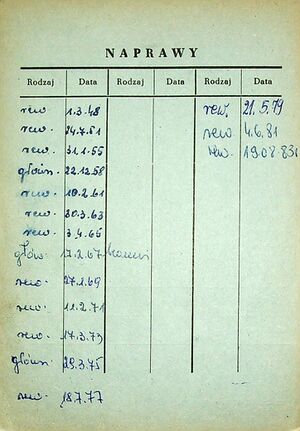 NAPRAWY
Rodzaj Data Rodzaj Data Rodzaj Data
rew. 1.3.48
rew. 24.7.51
rew. 31.1.55
główn. 22.12.58
rew. 10.2.61
rew. 30.3.63
rew. 3.4.65
głów. 17.2.67
rew. 27.1.69
rew. 11.2.71
rew. 17.3.73
główn. 29.3.75
rew. 18.7.77
rew. 21.5.79
rew. 4.6.81
rew. 19.08.83